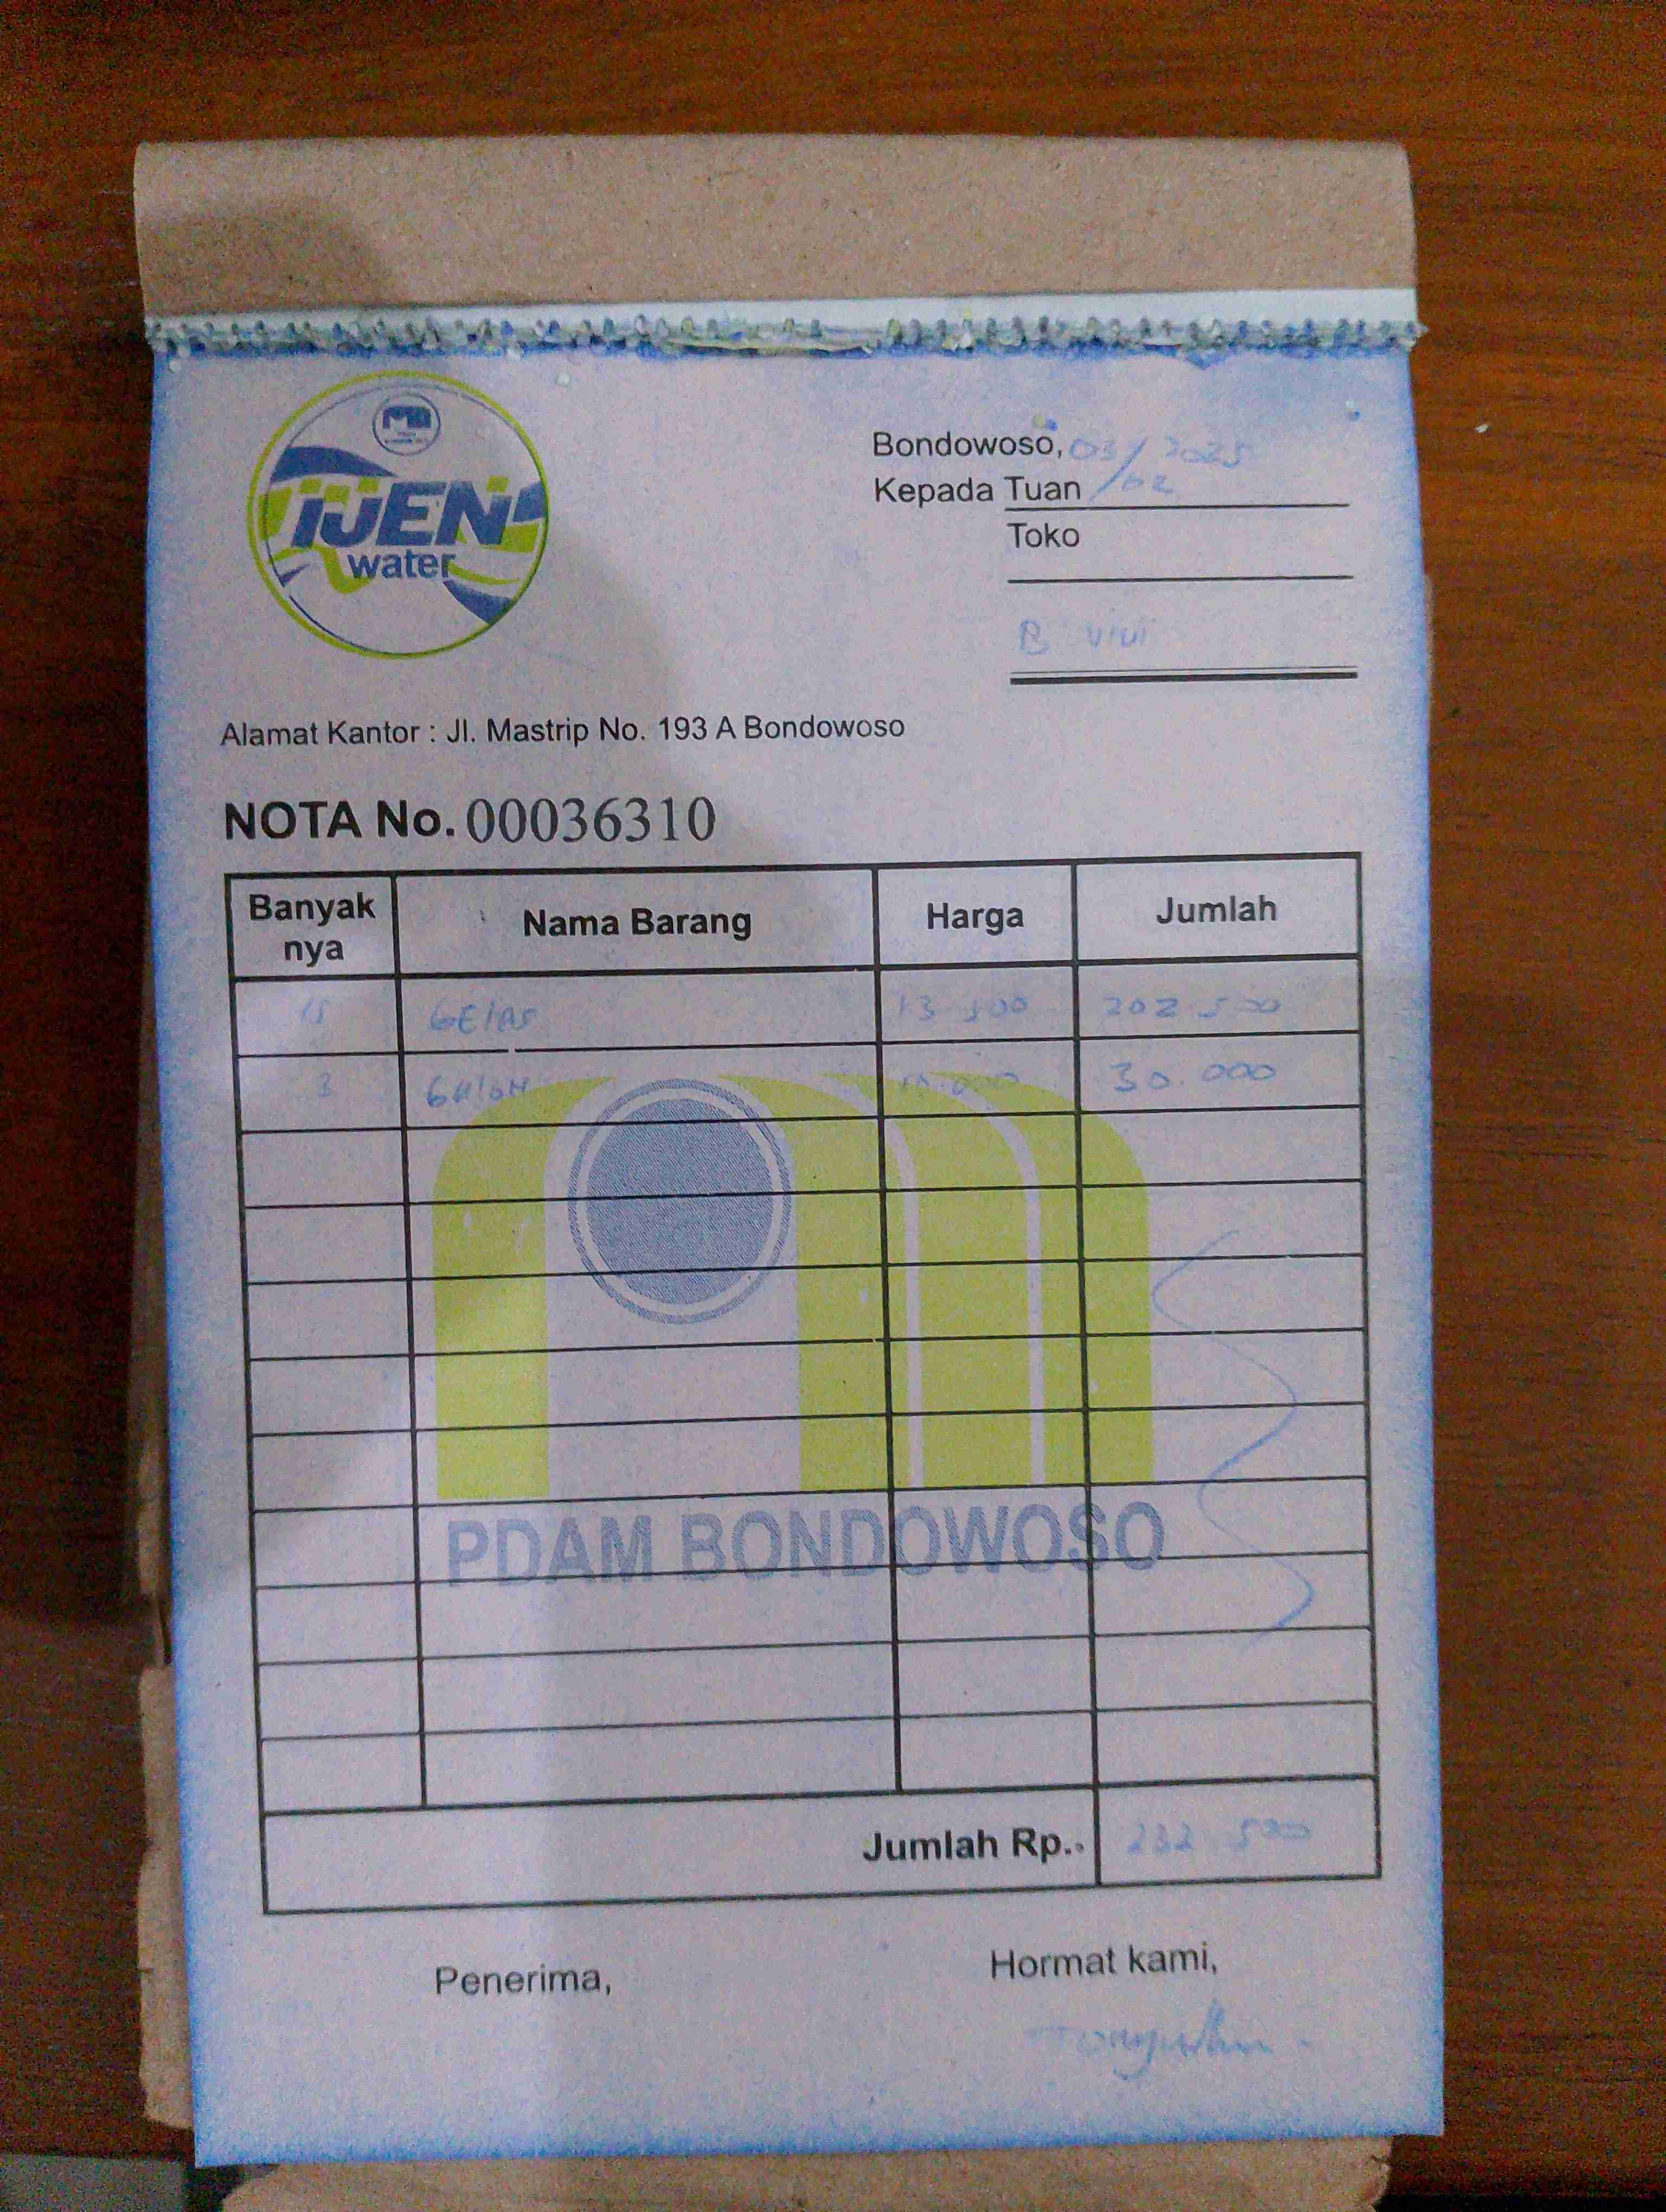 IJEN
water
Bondowoso, 03/02 2025
Kepada Tuan
Toko
B VIVI
Alamat Kantor : Jl. Mastrip No. 193 A Bondowoso
NOTA No. 00036310
Banyak nya Nama Barang Harga Jumlah
15 GElAS 13 500 202.500
3 GAlON 10.000 30.000
PDAM BONDOWOSO
Jumlah Rp.. 232.500
Penerima, Hormat kami,